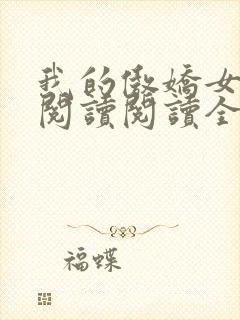 我的傲嬌女
閱讀閱讀全
福蝶